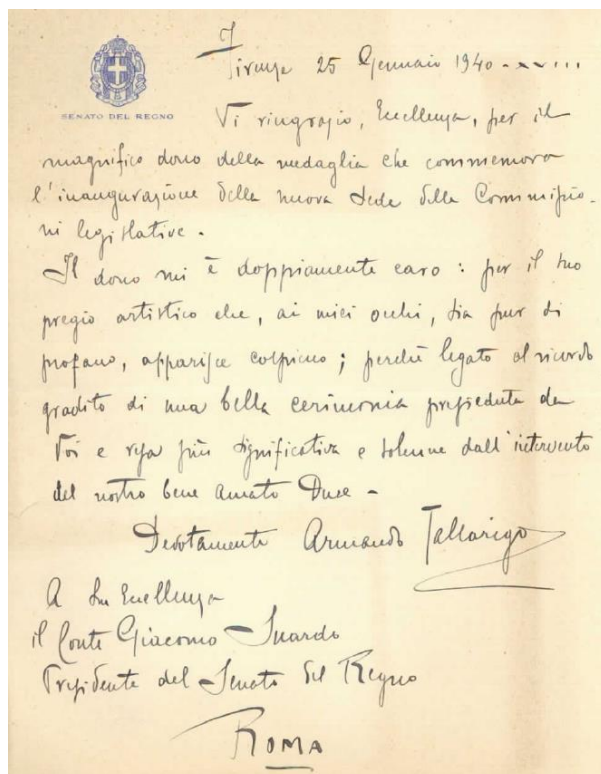 SENATO DEL REGNO
Firenze 25 Gennaio 1940 - XVIII
Vi ringrazio, Eccellenza, per il
magnifico dono della medaglia che commemora
l'inaugurazione della nuova Sede delle Commissio-
ni legislative.
Il dono mi è doppiamente caro: per il suo
pregio artistico che, ai miei occhi, sia pur di
profano, apparisce cospicuo; perchè legato al ricordo
gradito di una bella cerimonia presieduta da
Voi e resa più significativa e solenne dall'intervento
del nostro bene amato Duce -
Devotamente Armando Tallarigo
A Sua Eccellenza
il Conte Giacomo Suardo
Presidente del Senato del Regno
ROMA